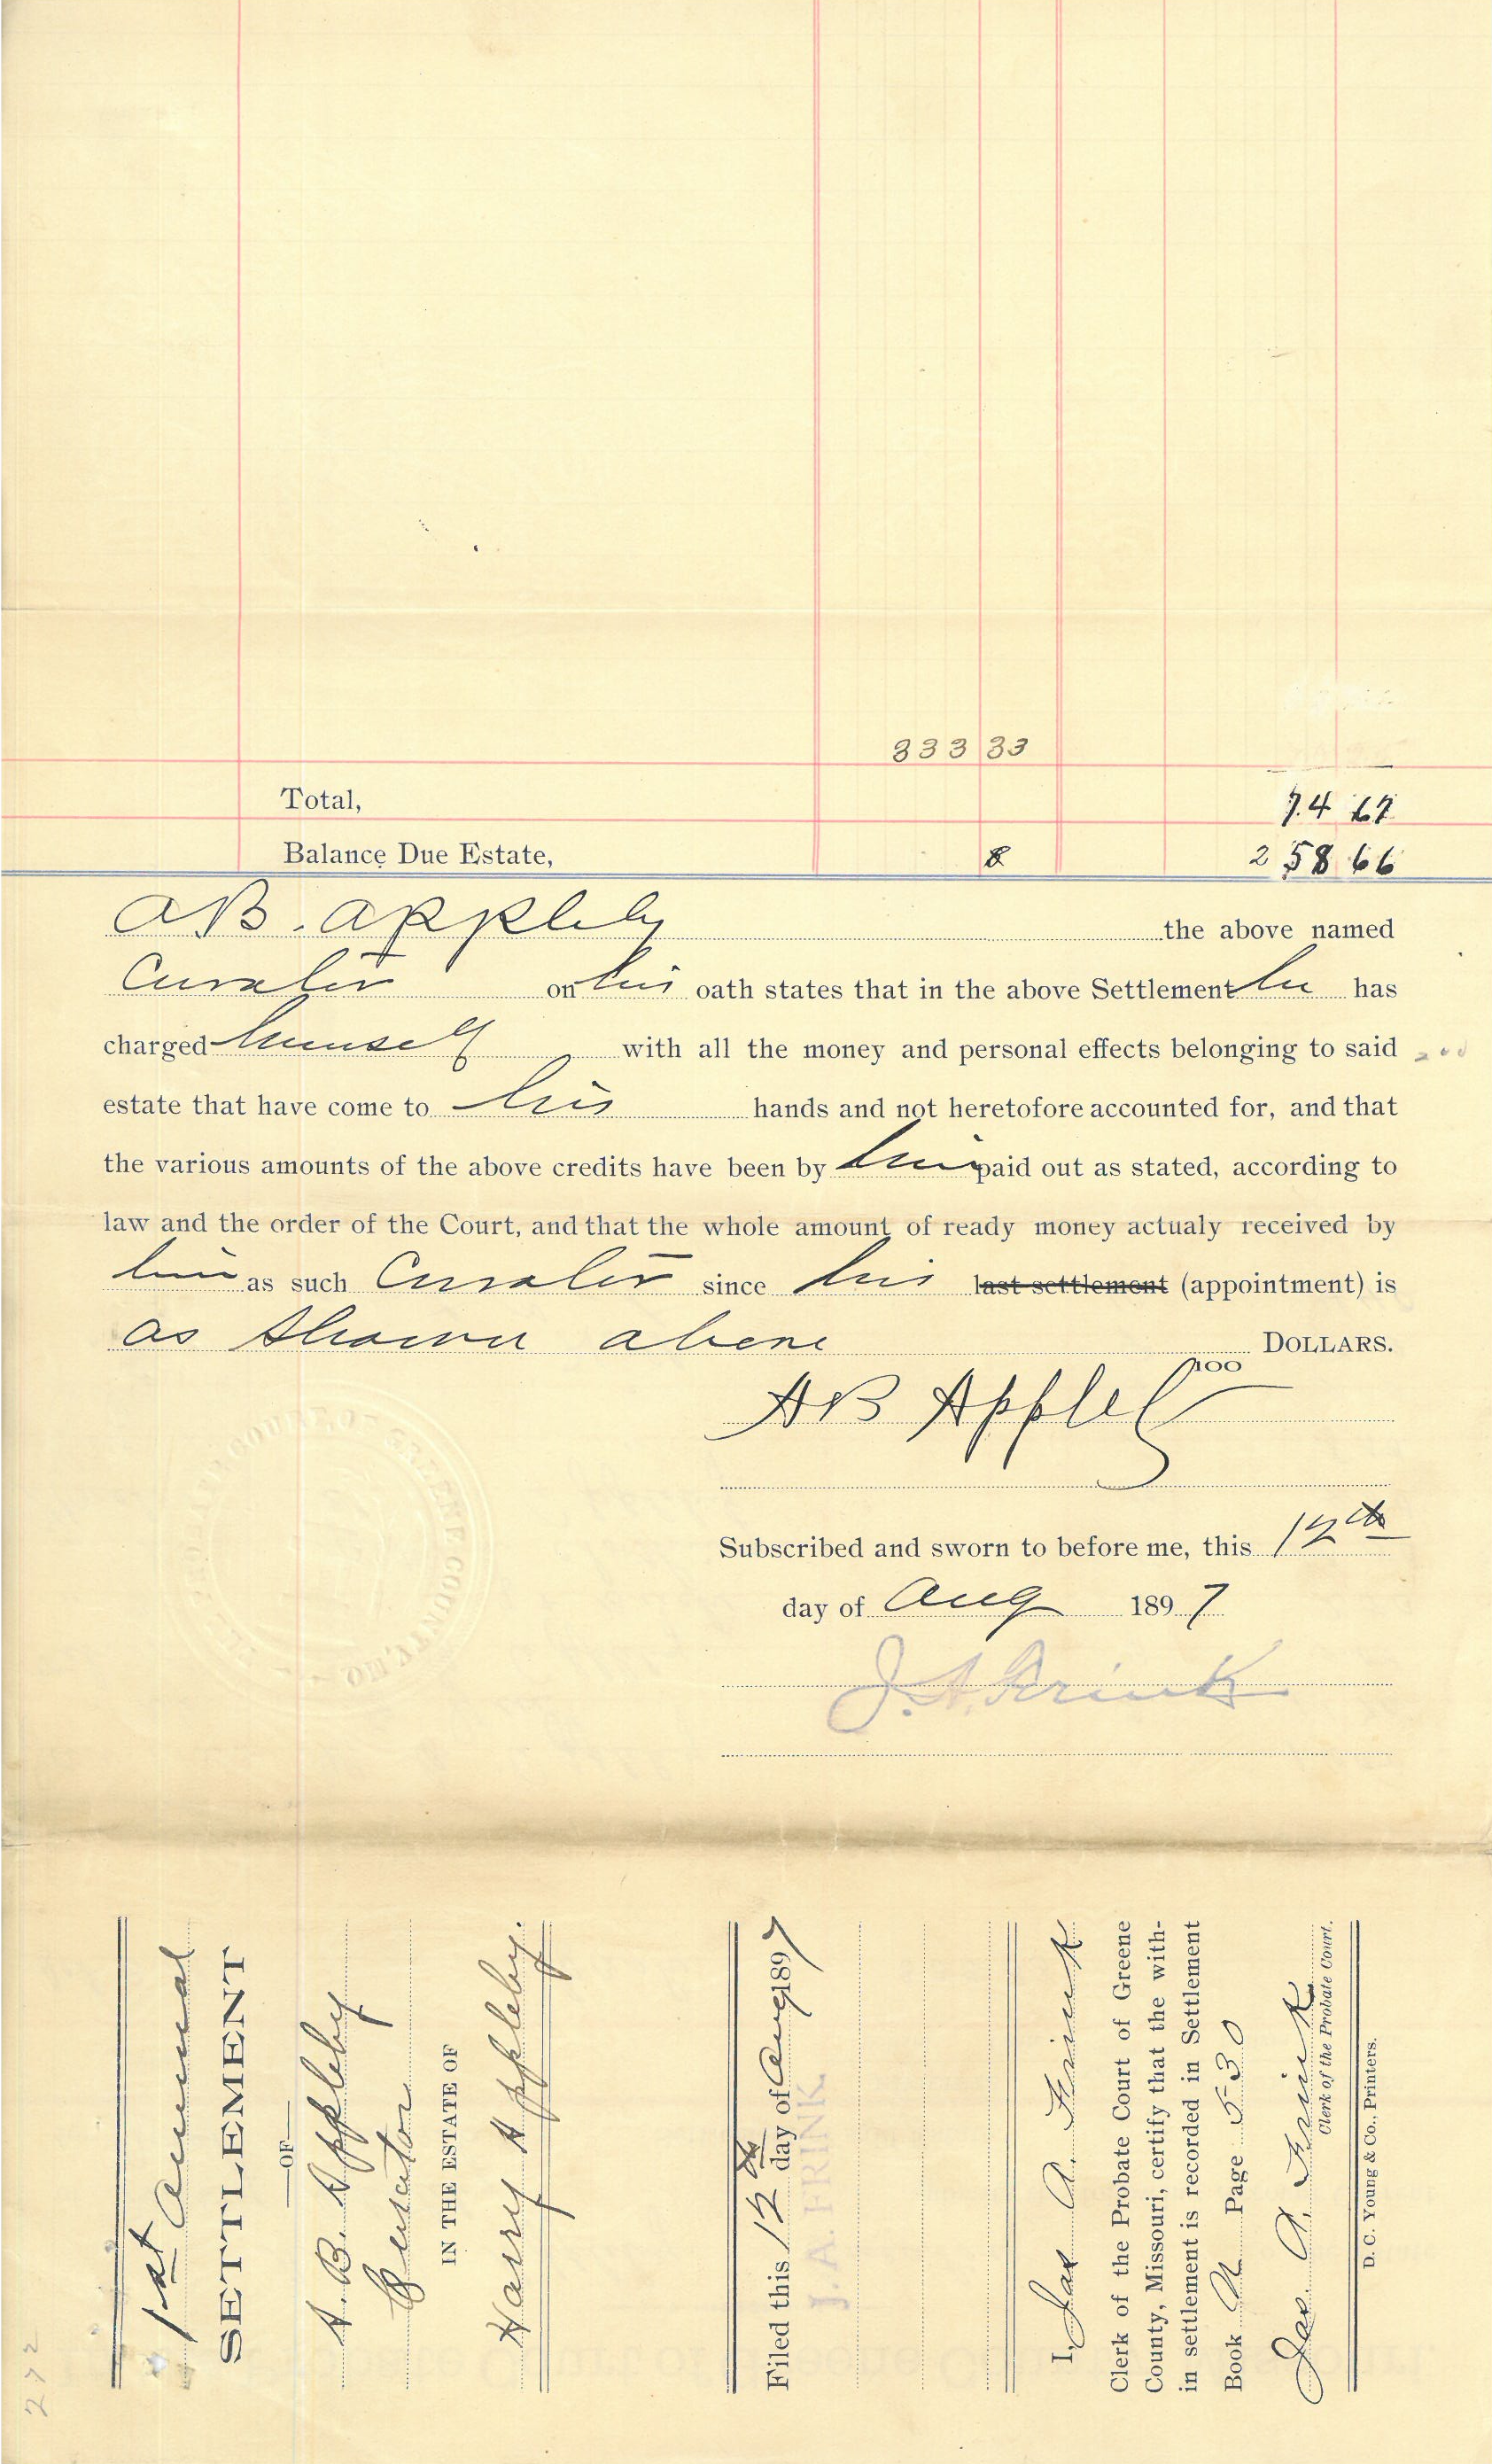 333 33
Total, 74 67
Balance Due Estate, $ 258 66
A B. Appleby the above named
Curator on his oath states that in the above Settlement he has
charged himself with all the money and personal effects belonging to said
estate that have come to his hands and not heretofore accounted for, and that
the various amounts of the above credits have been by him paid out as stated, according to
law and the order of the Court, and that the whole amount of ready money actualy received by
him as such Curator since his last settlement (appointment) is
as shown above DOLLARS.
100
A B Appleby
Subscribed and sworn to before me, this 12th
day of Aug 1897
J. A. Frink
PROBATE COURT OF GREENE COUNTY, MO.
1st Annual
SETTLEMENT
—OF—
A. B. Appleby
Curator
IN THE ESTATE OF
Harry Appleby.
Filed this 12th day of Aug 1897
J. A. FRINK
I, Jas A. Frink
Clerk of the Probate Court of Greene
County, Missouri, certify that the with-
in settlement is recorded in Settlement
Book N Page 530
Jas. A. Frink
Clerk of the Probate Court.
D. C. Young & Co., Printers.